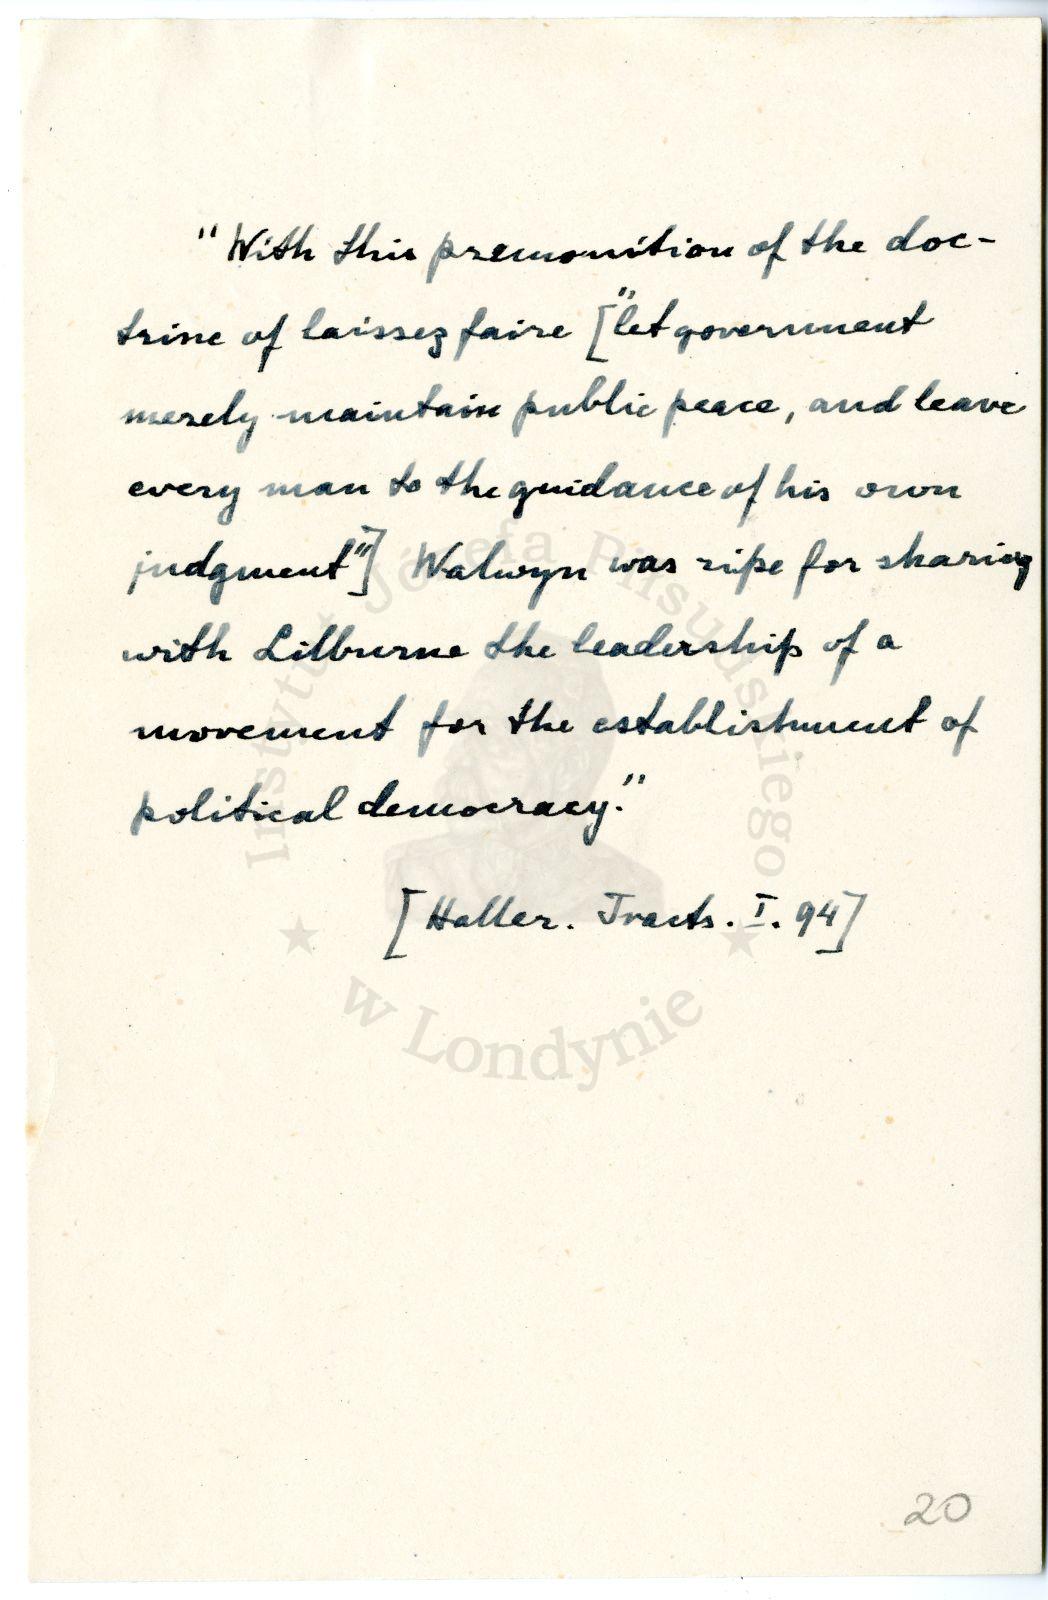 "With this premonition of the doc-
trine of laissez faire ["let government
merely maintain public peace, and leave
every man to the guidance of his own
judgment"] Walwyn was ripe for sharing
with Lilburne the leadership of a
movement for the establishment of
political democracy."
[Haller. Tracts. I. 94]
Instytut Józefa Piłsudskiego
w Londynie
20